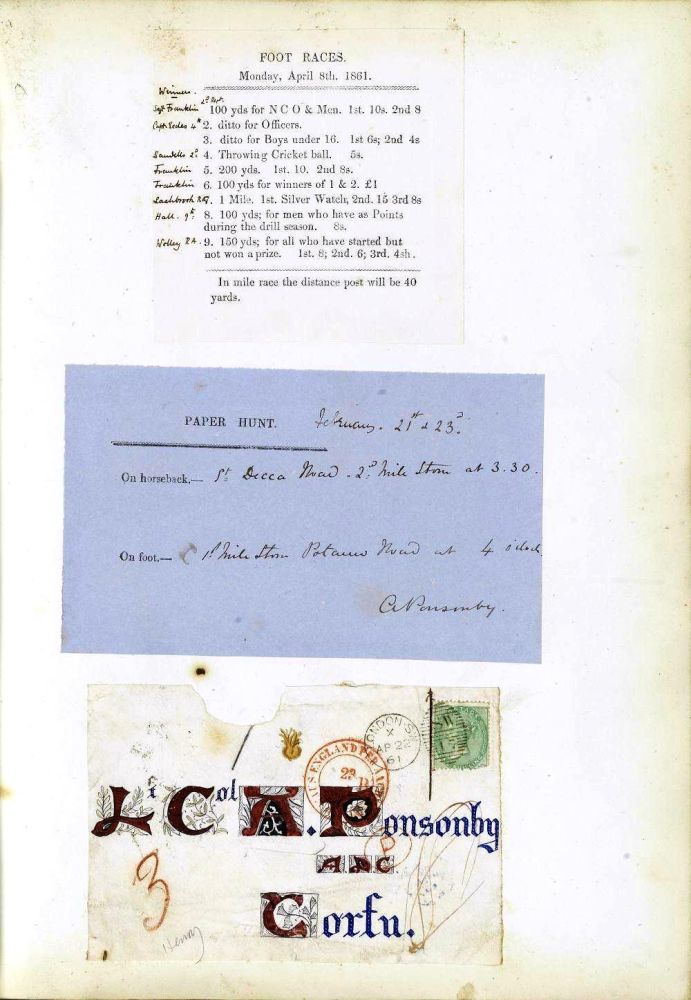 FOOT RACES.
Monday, April 8th. 1861.
Winners.
Sgt Franklin 100 yds for N C O & Men. 1st. 10s. 2nd 8
Capt. Eccles 4th 2. ditto for Officers.
3. ditto for Boys under 16. 1st 6s; 2nd 4s
Sandells 2d 4. Throwing Cricket ball. 5s.
Franklin 5. 200 yds. 1st. 10. 2nd 8s.
Franklin 6. 100 yds for winners of 1 & 2. £1
7. 1 Mile. 1st. Silver Watch, 2nd. 15 3rd 8s
Hall. 9th 8. 100 yds; for men who have as Points
during the drill season. 8s.
Wolley RA. 9. 150 yds; for all who have started but
not won a prize. 1st. 8; 2nd. 6; 3rd. 4sh.
In mile race the distance post will be 40
yards.
PAPER HUNT. February. 21st & 23d.
On horseback.— St Decca Road. 2d Mile Stone at 3.30.
On foot.— 1st Mile Stone Potamo Road at 4 o'clock
A Ponsonby.
LONDON S.W
X
AP 22
61
ENGLAND PER
23
Lt Col A. Ponsonby
ADC
Corfu.
3
Henry